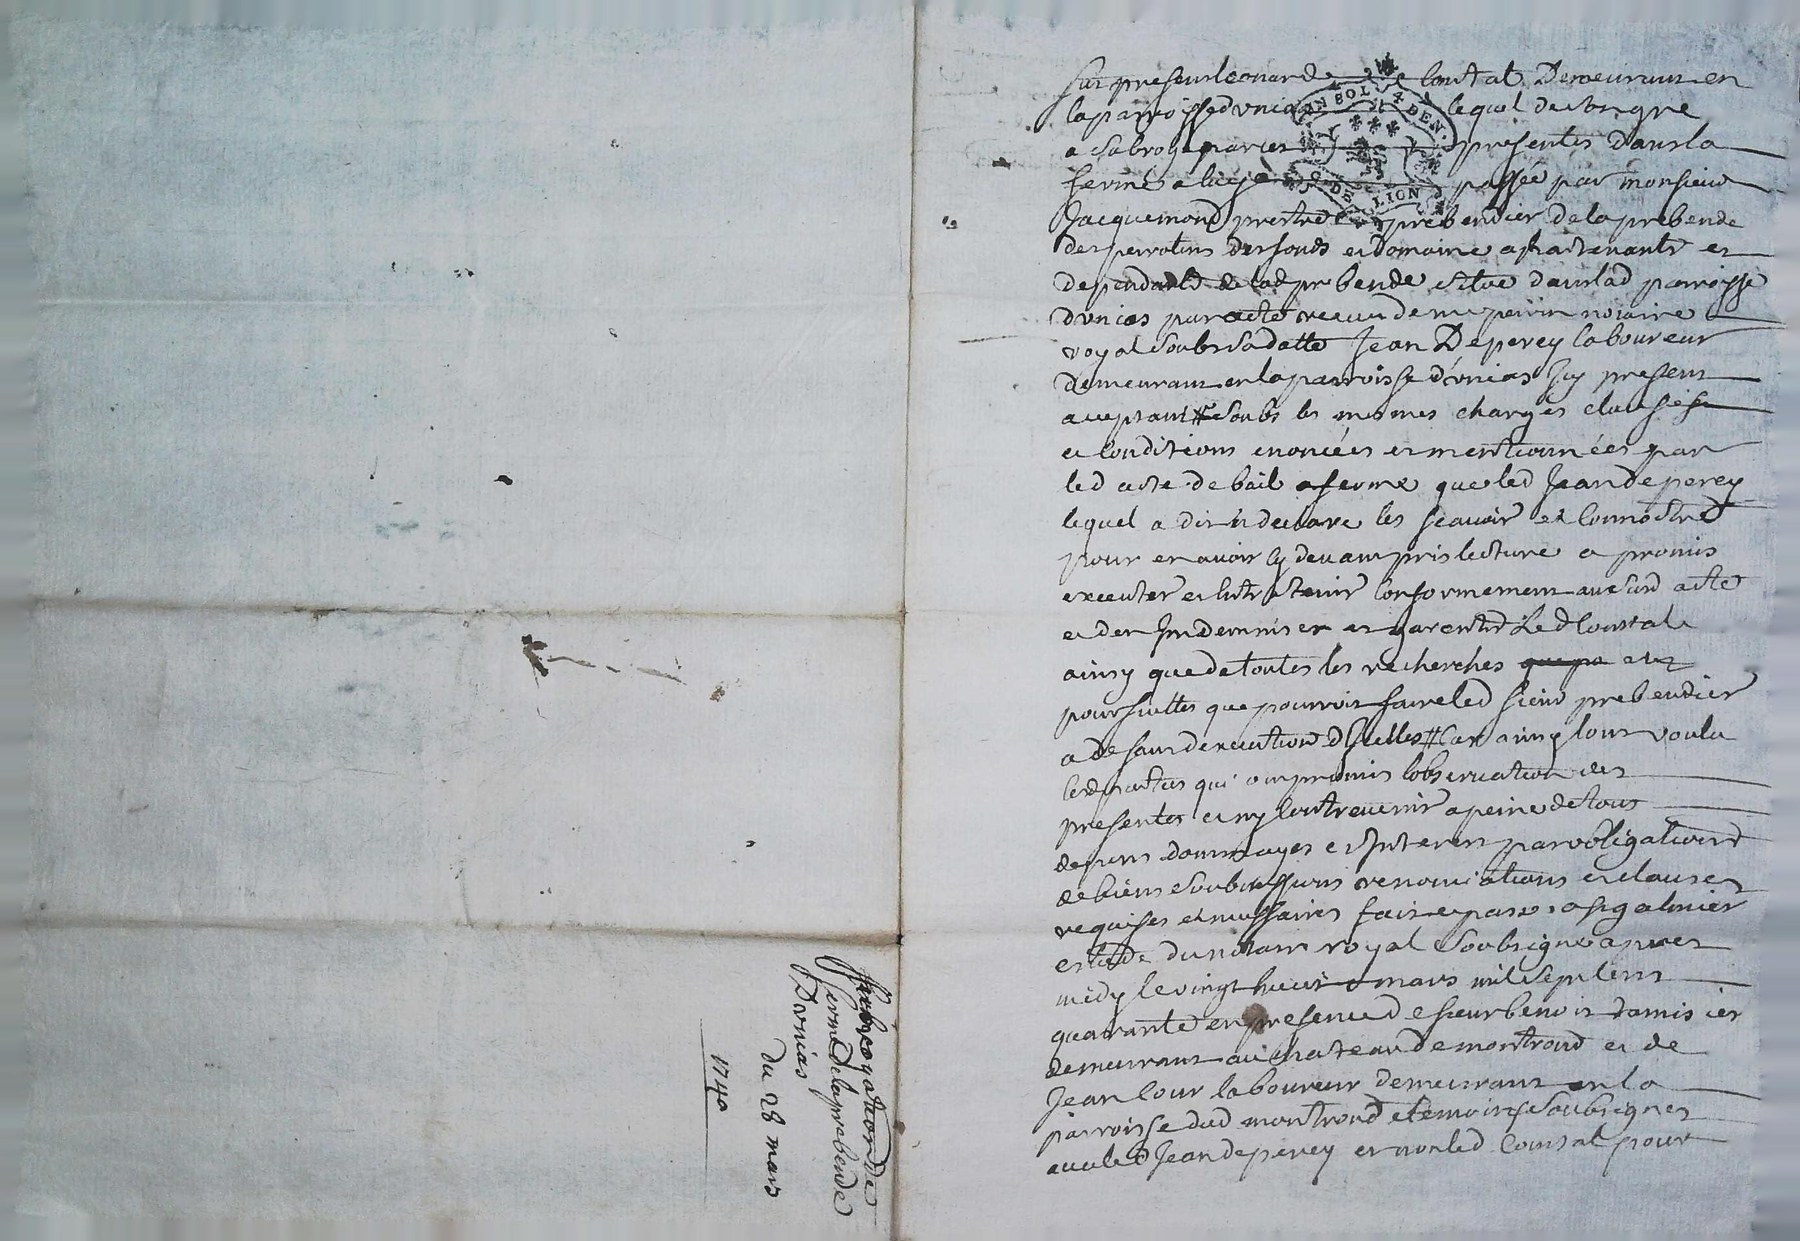 fut present Leonard Constat Demeurant en
la parroisse d'vnias lequel de son gre
a subroge par ces presentes dans la
ferme a luy passée par monsieur
Jacquemond prestre prebendier de la prebende
des perrotins des fonds et domaine apartenants et
dependants de lad prebende situé dans lad parroisse
d'vnias par acte receu de me perrin notaire
royal soubs sa datte Jean Deperey laboureur
demeurant en la parroisse d'vnias Jcy present
acceptant soubs les mesmes charges clauses
et Conditions enoncées et mentionnées par
led acte de bail a ferme que led Jean deperey
lequel a dit et declare les scauoir et Connoistre
pour en auoir cy deuant pris lecture a promis
executer et Entretenir Conformement au susd acte
et den Jndemniser et garentir Led Constat
ainsy que de toutes les recherches que pa et
poursuittes que pourroit faire led sieur prebendier
a defaut dexecution d'Jcelles Car ainsy lont voulu
lesd parties qui ont promis lobseruation des
presentes et ny Contreuenir a peine de tous
depens dommages et Jnterets par obligations
de biens soubmissions renonciations et clauses
requises et necessaires fait et passé a st galmier
estude du notaire royal soubsigné apres
midy le vingt huit mars mil sept cent
quarante en presence de sieur benoit damisier
demeurant au chateau de montrond et de
Jean Cour laboureur demeurant en la
parroisse dud montrond temoins soubsignes
auec led Jean deperey et non led Constat pour
IN SOL 4 DEN.
G. DE LION
Subrogation de
ferme de la prebende
D'vnias
du 28 mars
1740